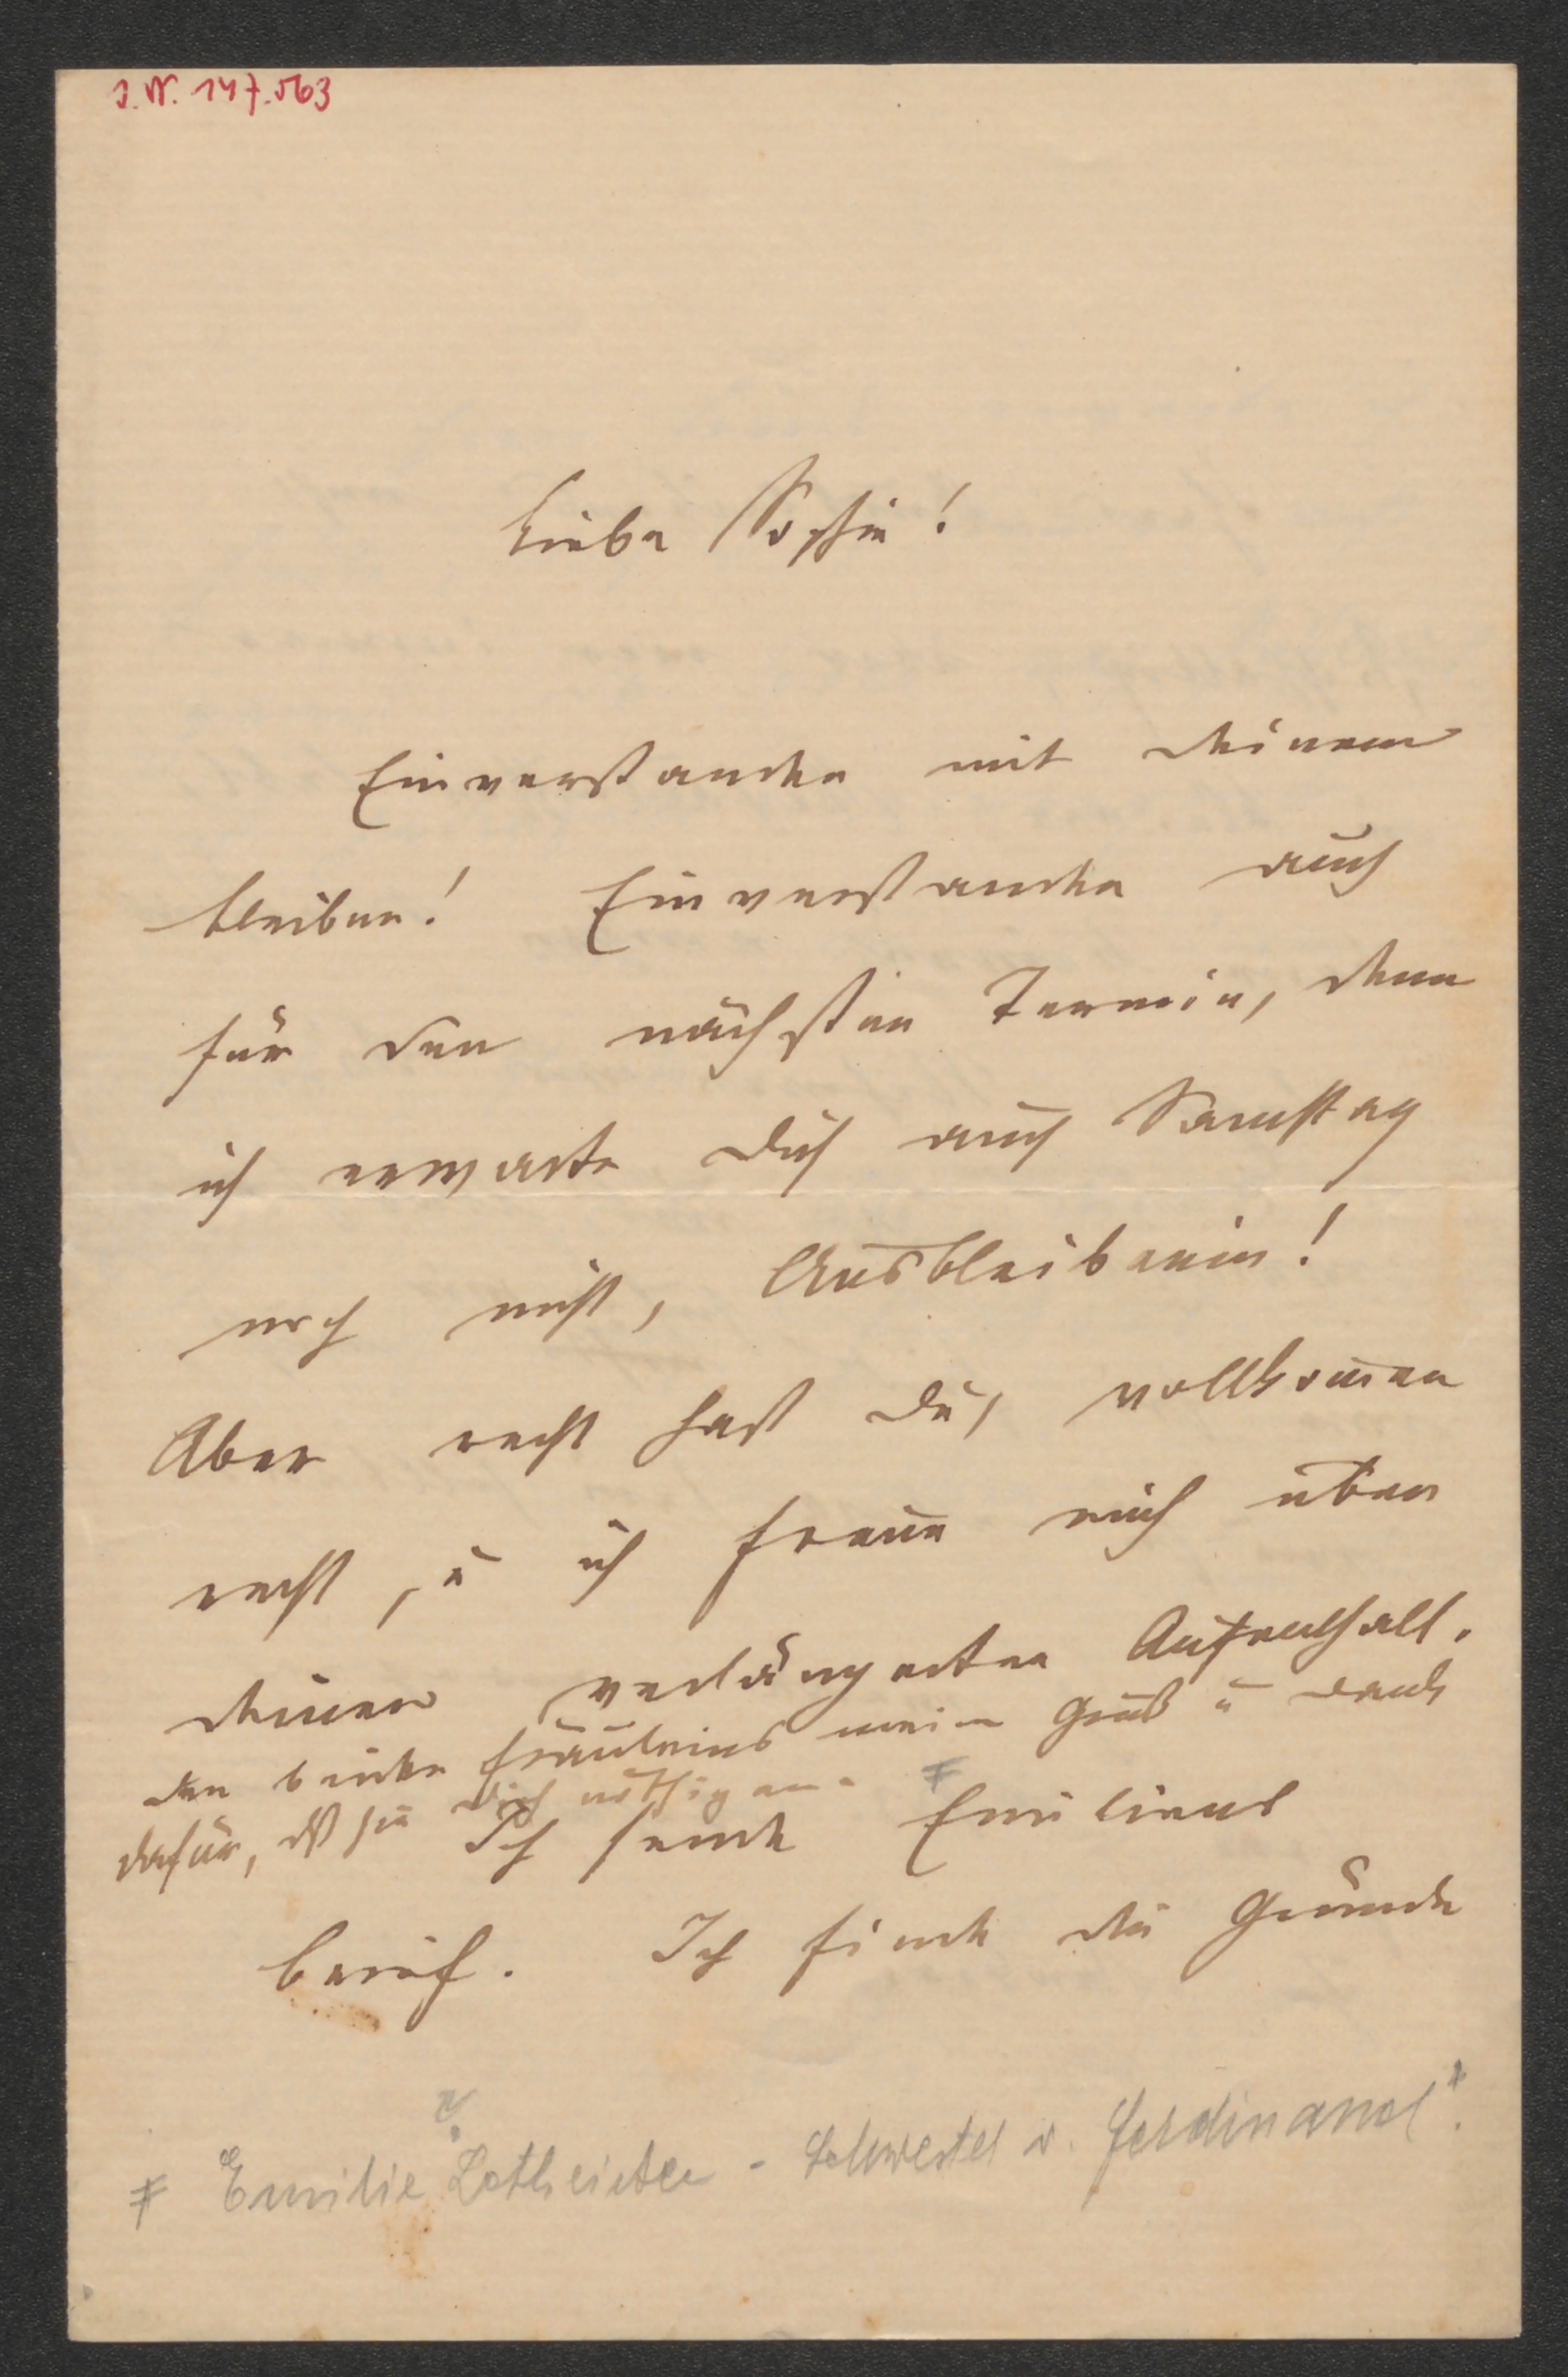 I. N. 147.563
Liebe Sophie!
Einverstanden mit deinem
bleiben! Einverstanden auch
für den nächsten Termin, denn
ich erwarte dich auch Samstag
noch nicht, Ausbleiberin!
Aber recht hast du, vollkom̅en
recht, u ich freue mich über
deinen verlängerten Aufenthalt.
den beiden Fräuleins meinen Gruß u dank
dafür, dß sie dich nöthigen.
Ich sende Emiliens
brief. Ich finde die Gründe
Emilie - Schwester v. Ferdinand